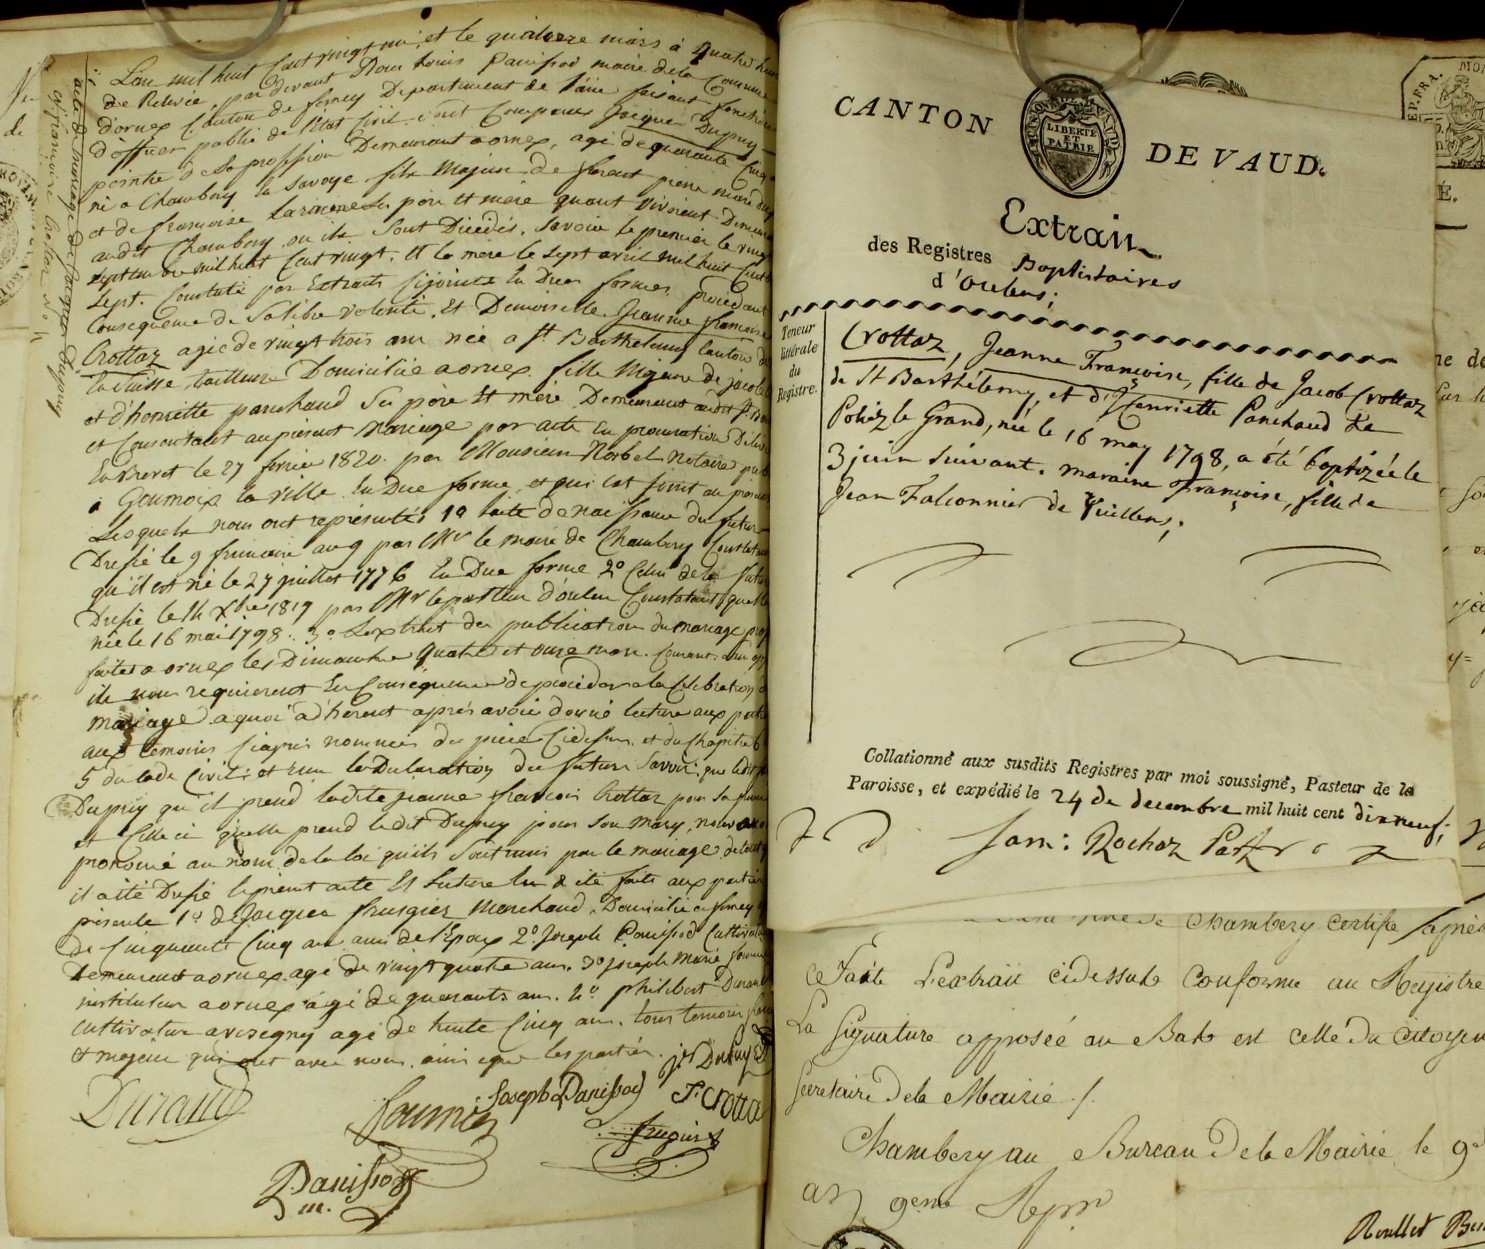 acte de mariage de Jacques Dupuy
et françoise Crottaz No 4
L'an mil huit cent vingt un, et le quatorze mars à quatre heures
de Relevée, par devant Nous Louis Panissod maire de la Commune
d'ornex Canton de ferney Département de l'ain faisant fonctions
d'officier public de l'Etat Civil. sont Comparus Jacques Dupuy
peintre de sa profession Demeurant a ornex, agé de quarante Cinq
né a Chambery en Savoye fils Majeur de feu
et de françoise Laracine ses père et mère quant vivoient Demeurant
audit Chambery ou ils Sont Décédés. Savoir le premier le vingt
mil huit Cent vingt. Et la mère le Sept avril mil huit Cent
Sept. Constaté par Extraits cijoints En Dues formes, procédant
Consequence de Sa libre volonté. Et Demoiselle Jeanne françoise
Crottaz agée de vingt trois ans née a St Barthelemy Canton de
la Suisse tailleuse Domiciliée a ornex fille Majeure de jacob
et d'henriette panchaud Ses père Et mère Demeurant audit St
et Consentant au présent Mariage par acte En procuration
En Brevet le 27 fevrier 1820. par Monsieur Notaire
a Goumoix la ville En Due forme, et qui est joint au présent
Lesquels nous ont représentés 1o l'acte de naissance du futur
Dressé le 9 frimaire an 9 par Mr le maire de Chambery Constatant
qu'il est né le 27 juillet 1776 En Due forme 2o Celui de la future
Dressé le 24 Xbre 1819 par Mr le pasteur d'oulens Constatant quelle
née le 16 mai 1798. 3o L'extrait des publications du mariage
faites a ornex les Dimanches quatre et onze mars Courant
ils nous requierent En Consequence de procéder a la Célébration
mariage a quoi adhérent après avoir donné lecture aux parties
aux temoins ciaprès nommés des pièces Cidessus et du Chapitre 6
5 du Code Civil; et reçu la Declaration du futur Savoir: que ledit
Dupuy qu'il prend ladite jeanne françoise Crottaz pour Sa femme
et Celle ci quelle prend ledit Dupuy pour Son Mary, nous avons
prononcé au nom de la loi qu'ils Sont unis par le mariage
il a été Dressé le présent acte Et lecture En a été faite aux parties
présence 1o de Jacques frugier Marchand Domicilié a ferney
de Cinquante Cinq ans ami de l'Epoux 2o Joseph Panissod Cultivateur
Demeurant a ornex agé de vingt quatre ans. 3o joseph Marie fournier
instituteur a ornex agé de quarante ans. 4o philibert Durand
Cultivateur a versegny agé de trente Cinq ans. tous temoins
Et majeurs qui ont avec nous ainsi que les parties
Dupuy
Durand Fournier Joseph Panissod F. Crottaz
frugier
Panissod
m.
CANTON DE VAUD.
LIBERTÉ
ET
PATRIE
Extrait
des Registres Baptistaires
d'Oulens;
Teneur
littérale
du
Registre.
Crottaz, Jeanne Françoise, fille de Jacob Crottaz
de St Barthélemy, et d'Henriette Panchaud de
Poliez le Grand, née le 16 may 1798, a été baptizée le
3 juin suivant. maraine Françoise, fille de
Jean Falconnier de Vuillens;
Collationné aux susdits Registres par moi soussigné, Pasteur de la
Paroisse, et expédié le 24 de decembre mil huit cent dix neuf;
Sam: Rochaz Pastr
de Chambery certifie après
L'extrait cidessus conforme au Registre
La Signature apposée au Bas est celle du citoyen
Secretaire de la Mairie /.
Chambery au Bureau de la Mairie le 9e
an 9eme Rep
Roullet